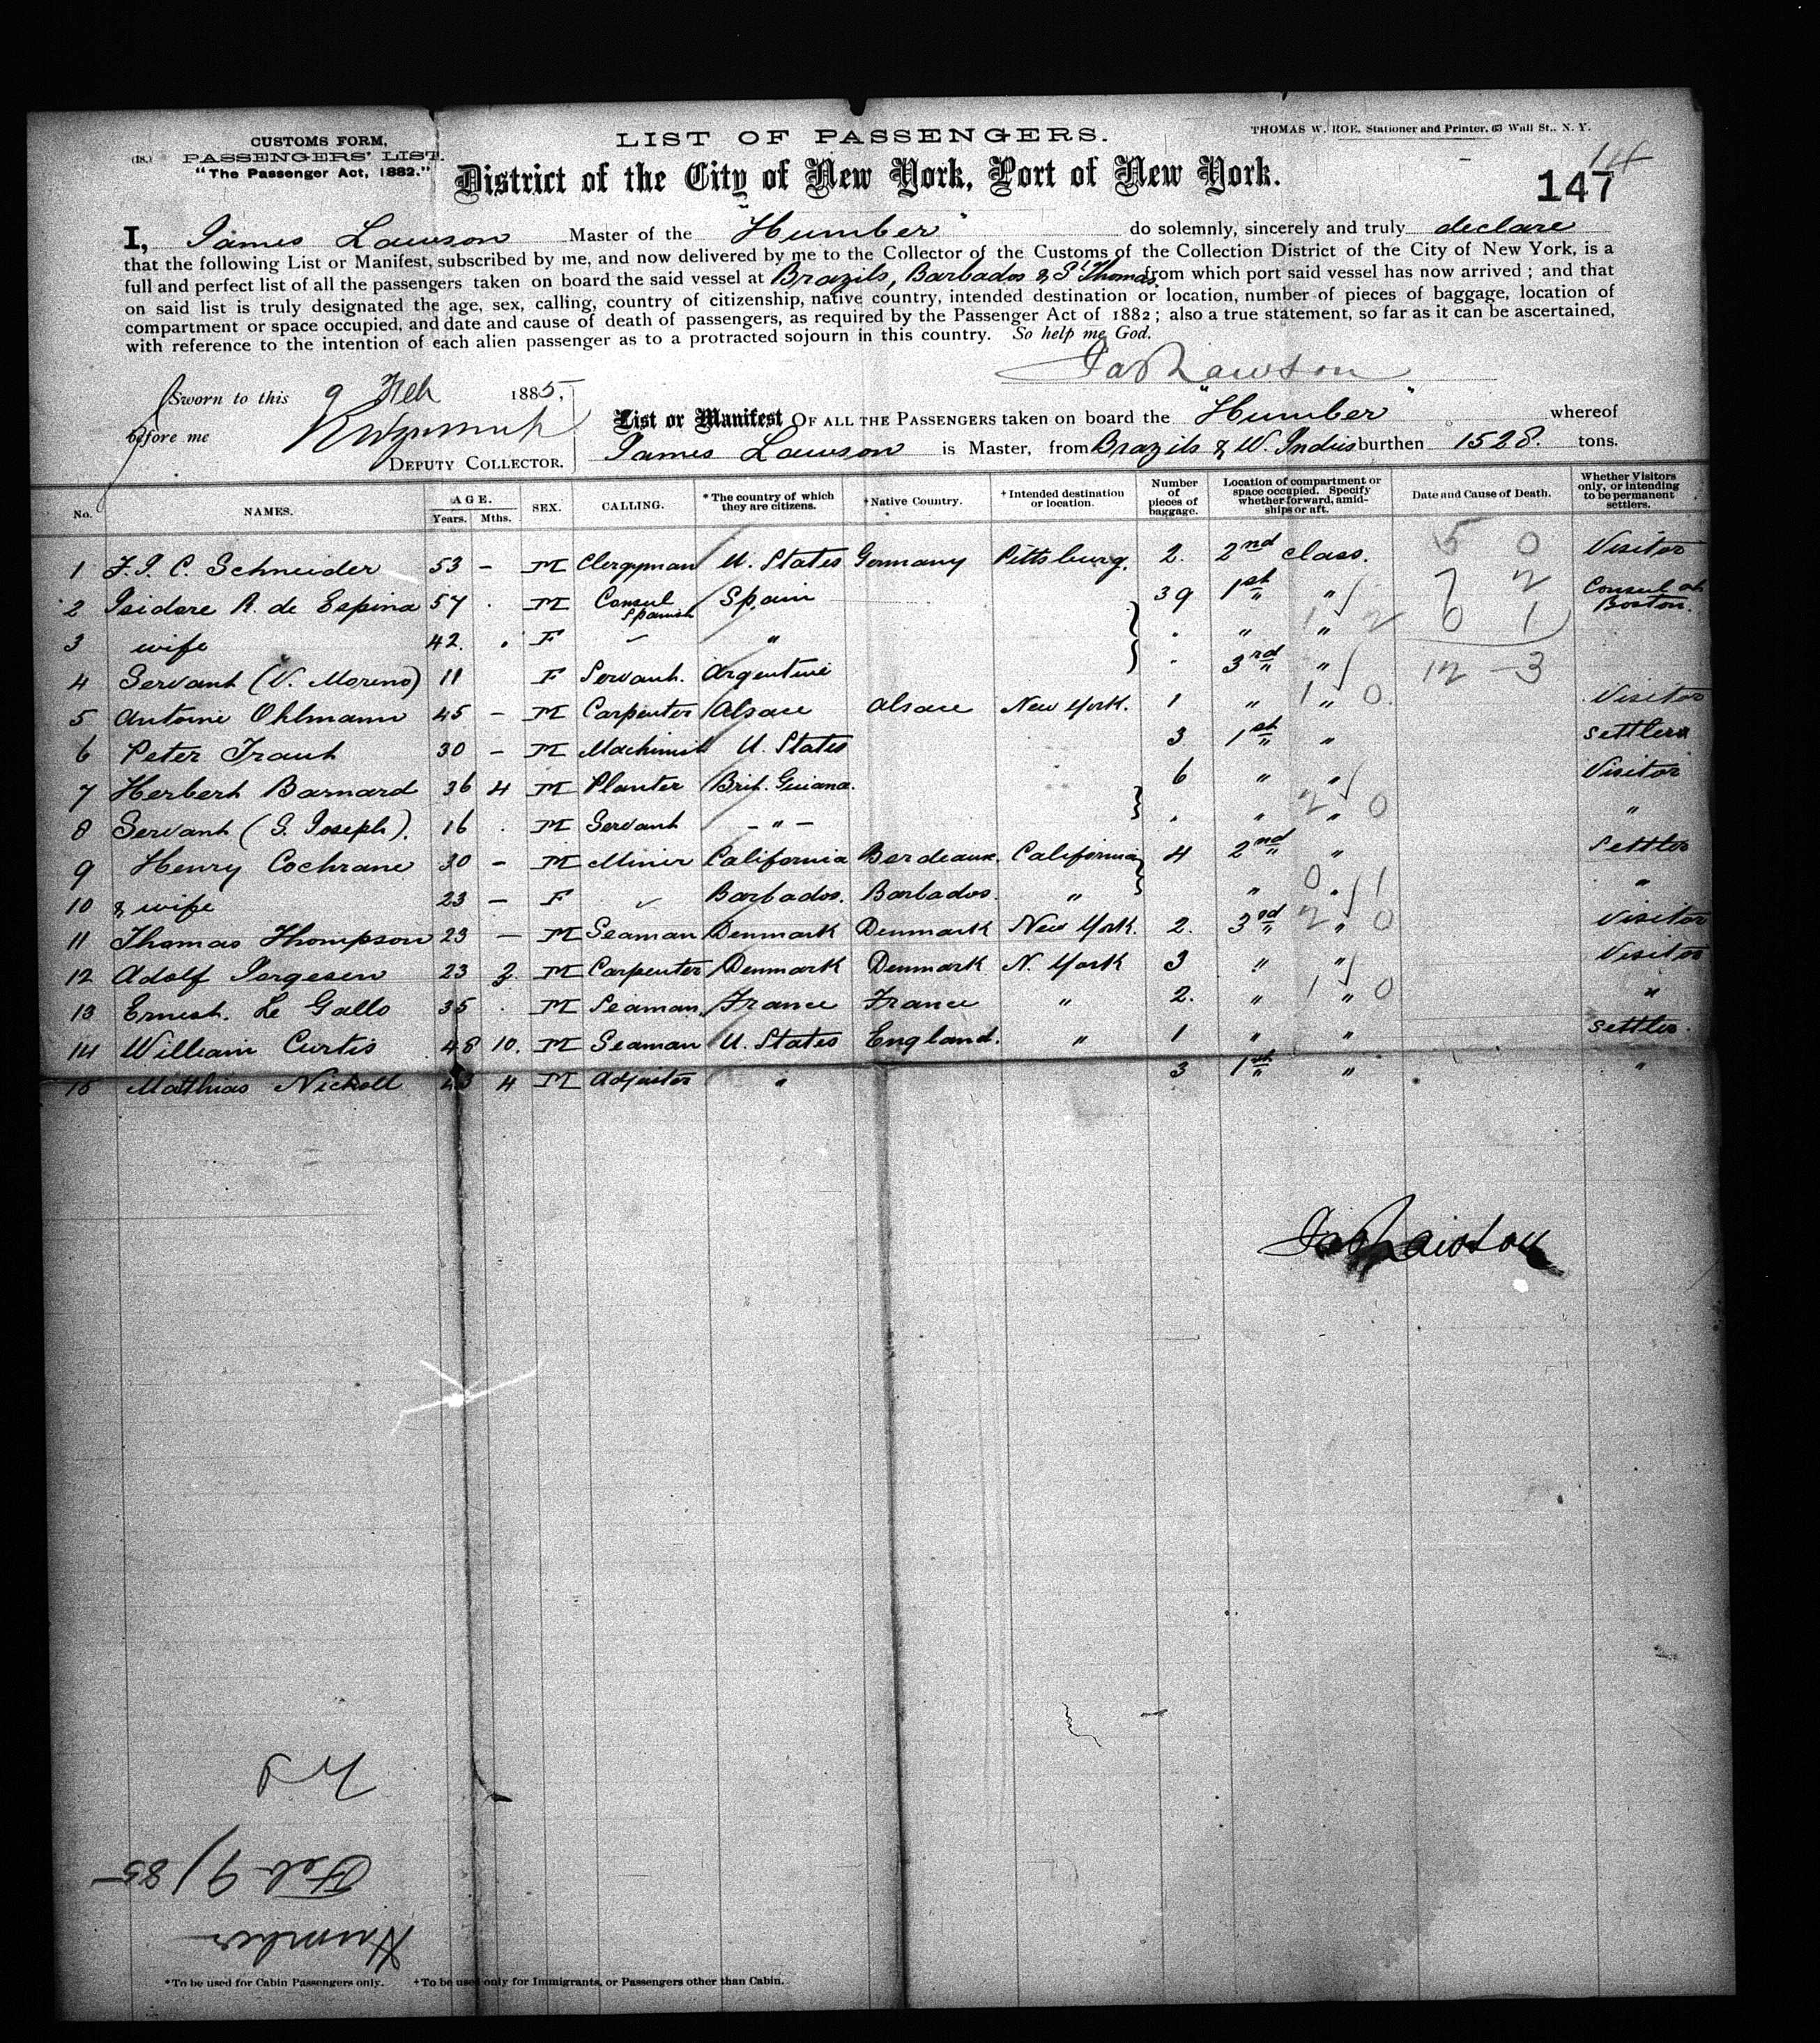 CUSTOMS FORM,
(18.) PASSENGERS' LIST.
"The Passenger Act, 1882."
LIST OF PASSENGERS.
THOMAS W. ROE, Stationer and Printer, 63 Wall St., N. Y.
District of the City of New York, Port of New York.
14
147
I, James Lawson Master of the "Humber" do solemnly, sincerely and truly declare
that the following List or Manifest, subscribed by me, and now delivered by me to the Collector of the Customs of the Collection District of the City of New York, is a
full and perfect list of all the passengers taken on board the said vessel at Brazils, Barbados & St Thomas from which port said vessel has now arrived; and that
on said list is truly designated the age, sex, calling, country of citizenship, native country, intended destination or location, number of pieces of baggage, location of
compartment or space occupied, and date and cause of death of passengers, as required by the Passenger Act of 1882; also a true statement, so far as it can be ascertained,
with reference to the intention of each alien passenger as to a protracted sojourn in this country. So help me God.
Jas Lawson
Sworn to this 9 Feb 1885,
before me
DEPUTY COLLECTOR.
List or Manifest OF ALL THE PASSENGERS taken on board the "Humber" whereof
James Lawson is Master, from Brazils & W. Indies burthen 1528. tons.
No. NAMES. AGE. Years. Mths. SEX. CALLING. *The country of which they are citizens. †Native Country. †Intended destination or location. Number of pieces of baggage. Location of compartment or space occupied. Specify whether forward, amidships or aft. Date and Cause of Death. Whether Visitors only, or intending to be permanent settlers.
1 F. J. C. Schneider 53 - M Clergyman U. States Germany Pittsburg. 2. 2nd class. 5 0 Visitor
2 Isidore R. de Espina 57 . M Consul Spanish Spain 39 1st " 7 2 Consul at Boston.
3 wife 42. . F - " . " " 1 2 0 1
4 Servant (V. Moreno) 11 F Servant. Argentine . 3rd " 12 - 3
5 Antoine Ohlmann 45 - M Carpenter Alsace Alsace New York. 1 " " 1 0 Visitor
6 Peter Traut 30 - M Machinist U. States 3 1st " settler
7 Herbert Barnard 36 4 M Planter Brit. Guiana. 6 " " Visitor
8 Servant (S. Joseph). 16 . M Servant - " - . " " 2 0 "
9 Henry Cochrane 30 - M Miner California Bordeaux. California 4 2nd " Settler
10 & wife 23 - F Barbados. Barbados. " " " 0 1 "
11 Thomas Thompson 23 - M Seaman Denmark Denmark New York. 2. 3rd " 2 0 Visitor
12 Adolf Jorgesen 23 3. M Carpenter Denmark Denmark N. York 3 " " Visitor
13 Ernest. Le Gallo 35 . M Seaman. France France " 2. " " 1 0 "
14 William Curtis 48 10. M Seaman U. States England. " 1 " " settler.
15 Matthias Nicholl 43 4 M Adjuster " 3 1st " "
Jas Lawson
Humber
Feb 9/85
*To be used for Cabin Passengers only. †To be used only for Immigrants, or Passengers other than Cabin.